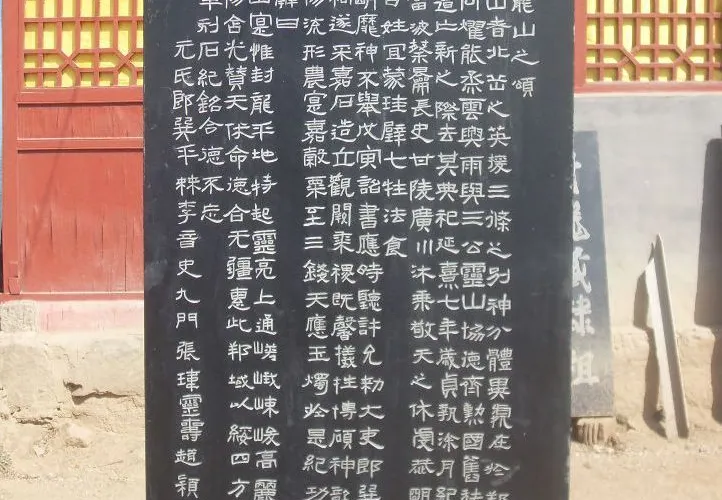 龍山之頌
山者北岳之英援三條之別神分體異處在於邦
同燿能烝雲興雨與三公靈山協德齊勳國舊秩
遭亡新之際失其典祀延熹七年歲貞執涂月紀
富波蔡長史甘陵廣川沐乘敬天之休虔恭明
百姓宜蒙珪璧七牲法食
明靡神不舉戊寅詔書應時聽許允敕大吏郎巽
祠遂采嘉石造立觀闕黍稷既馨犧牲博碩神歆
物流形農寔嘉穀粟至三錢天應玉燭於是紀功
辭曰
山寔惟封龍平地特起靈亮上通嵯峨崠峻高麗
物含光贊天休命德合无疆惠此邦域以綏四方
章刻石紀銘令德不忘
元氏郎巽平棘李音史九門張瑋靈壽趙穎